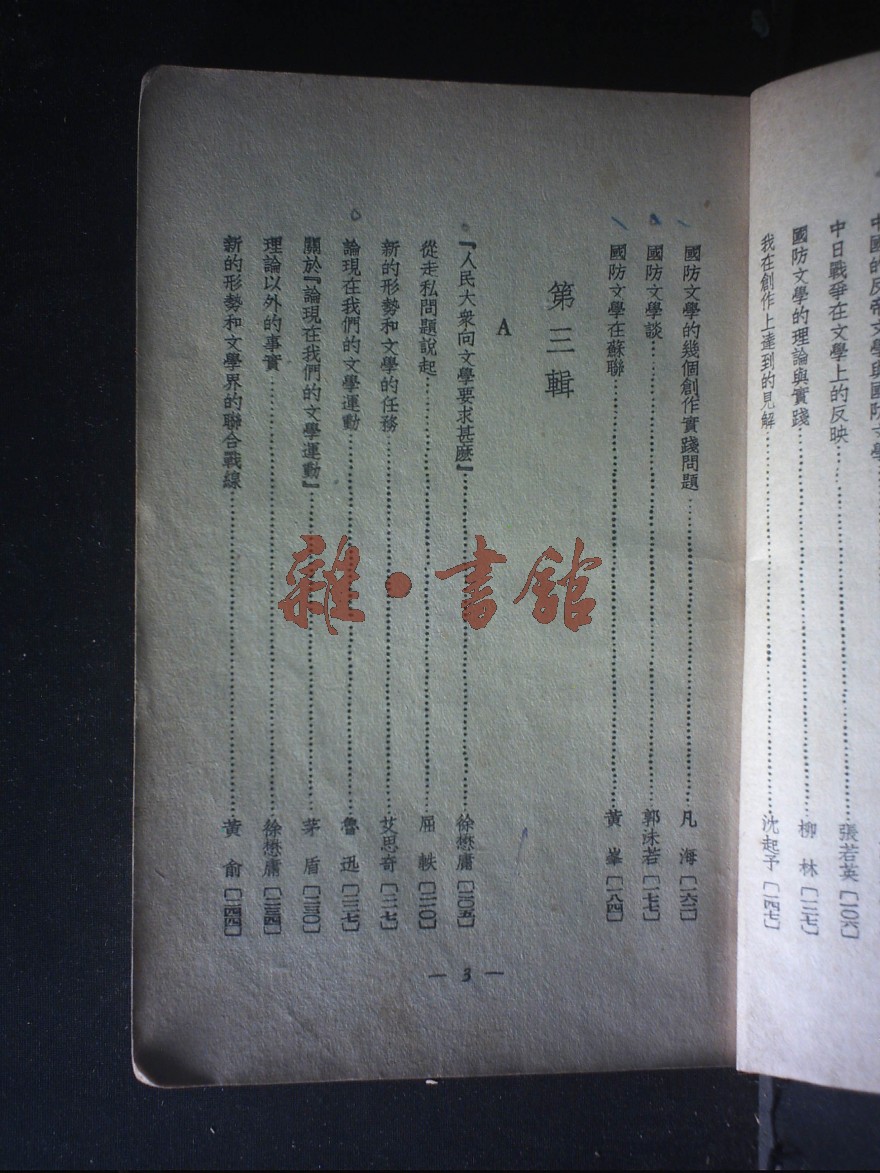 中日戰爭在文學上的反映……張若英〔一〇六〕
國防文學的理論與實踐……柳林〔一二七〕
我在創作上達到的見解……沈起予〔一四七〕
國防文學的幾個創作實踐問題……凡海〔一六二〕
國防文學談……郭沫若〔一七七〕
國防文學在蘇聯……黃峯〔一八四〕
第三輯
A
『人民大衆向文學要求甚麼』……徐懋庸〔二〇五〕
從走私問題說起……屈軼〔二一〇〕
新的形勢和文學的任務……艾思奇〔二一七〕
論現在我們的文學運動……魯迅〔二二七〕
關於『論現在我們的文學運動』……茅盾〔二三〇〕
理論以外的事實……徐懋庸〔二三四〕
新的形勢和文學界的聯合戰線……黃俞〔二四四〕
— 3 —
雜·書館